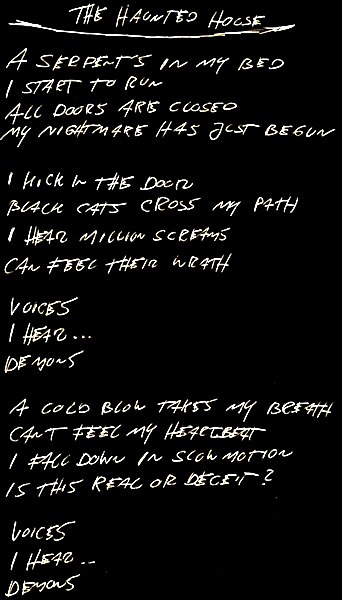 THE HAUNTED HOUSE
A SERPENT'S IN MY BED
I START TO RUN
ALL DOORS ARE CLOSED
MY NIGHTMARE HAS JUST BEGUN
I KICK IN THE DOOR
BLACK CATS CROSS MY PATH
I HEAR MILLION SCREAMS
CAN FEEL THEIR WRATH
VOICES
I HEAR...
DEMONS
A COLD BLOW TAKES MY BREATH
CAN'T FEEL MY HEARTBEAT
I FALL DOWN IN SLOWMOTION
IS THIS REAL OR DECEIT?
VOICES
I HEAR..
DEMONS